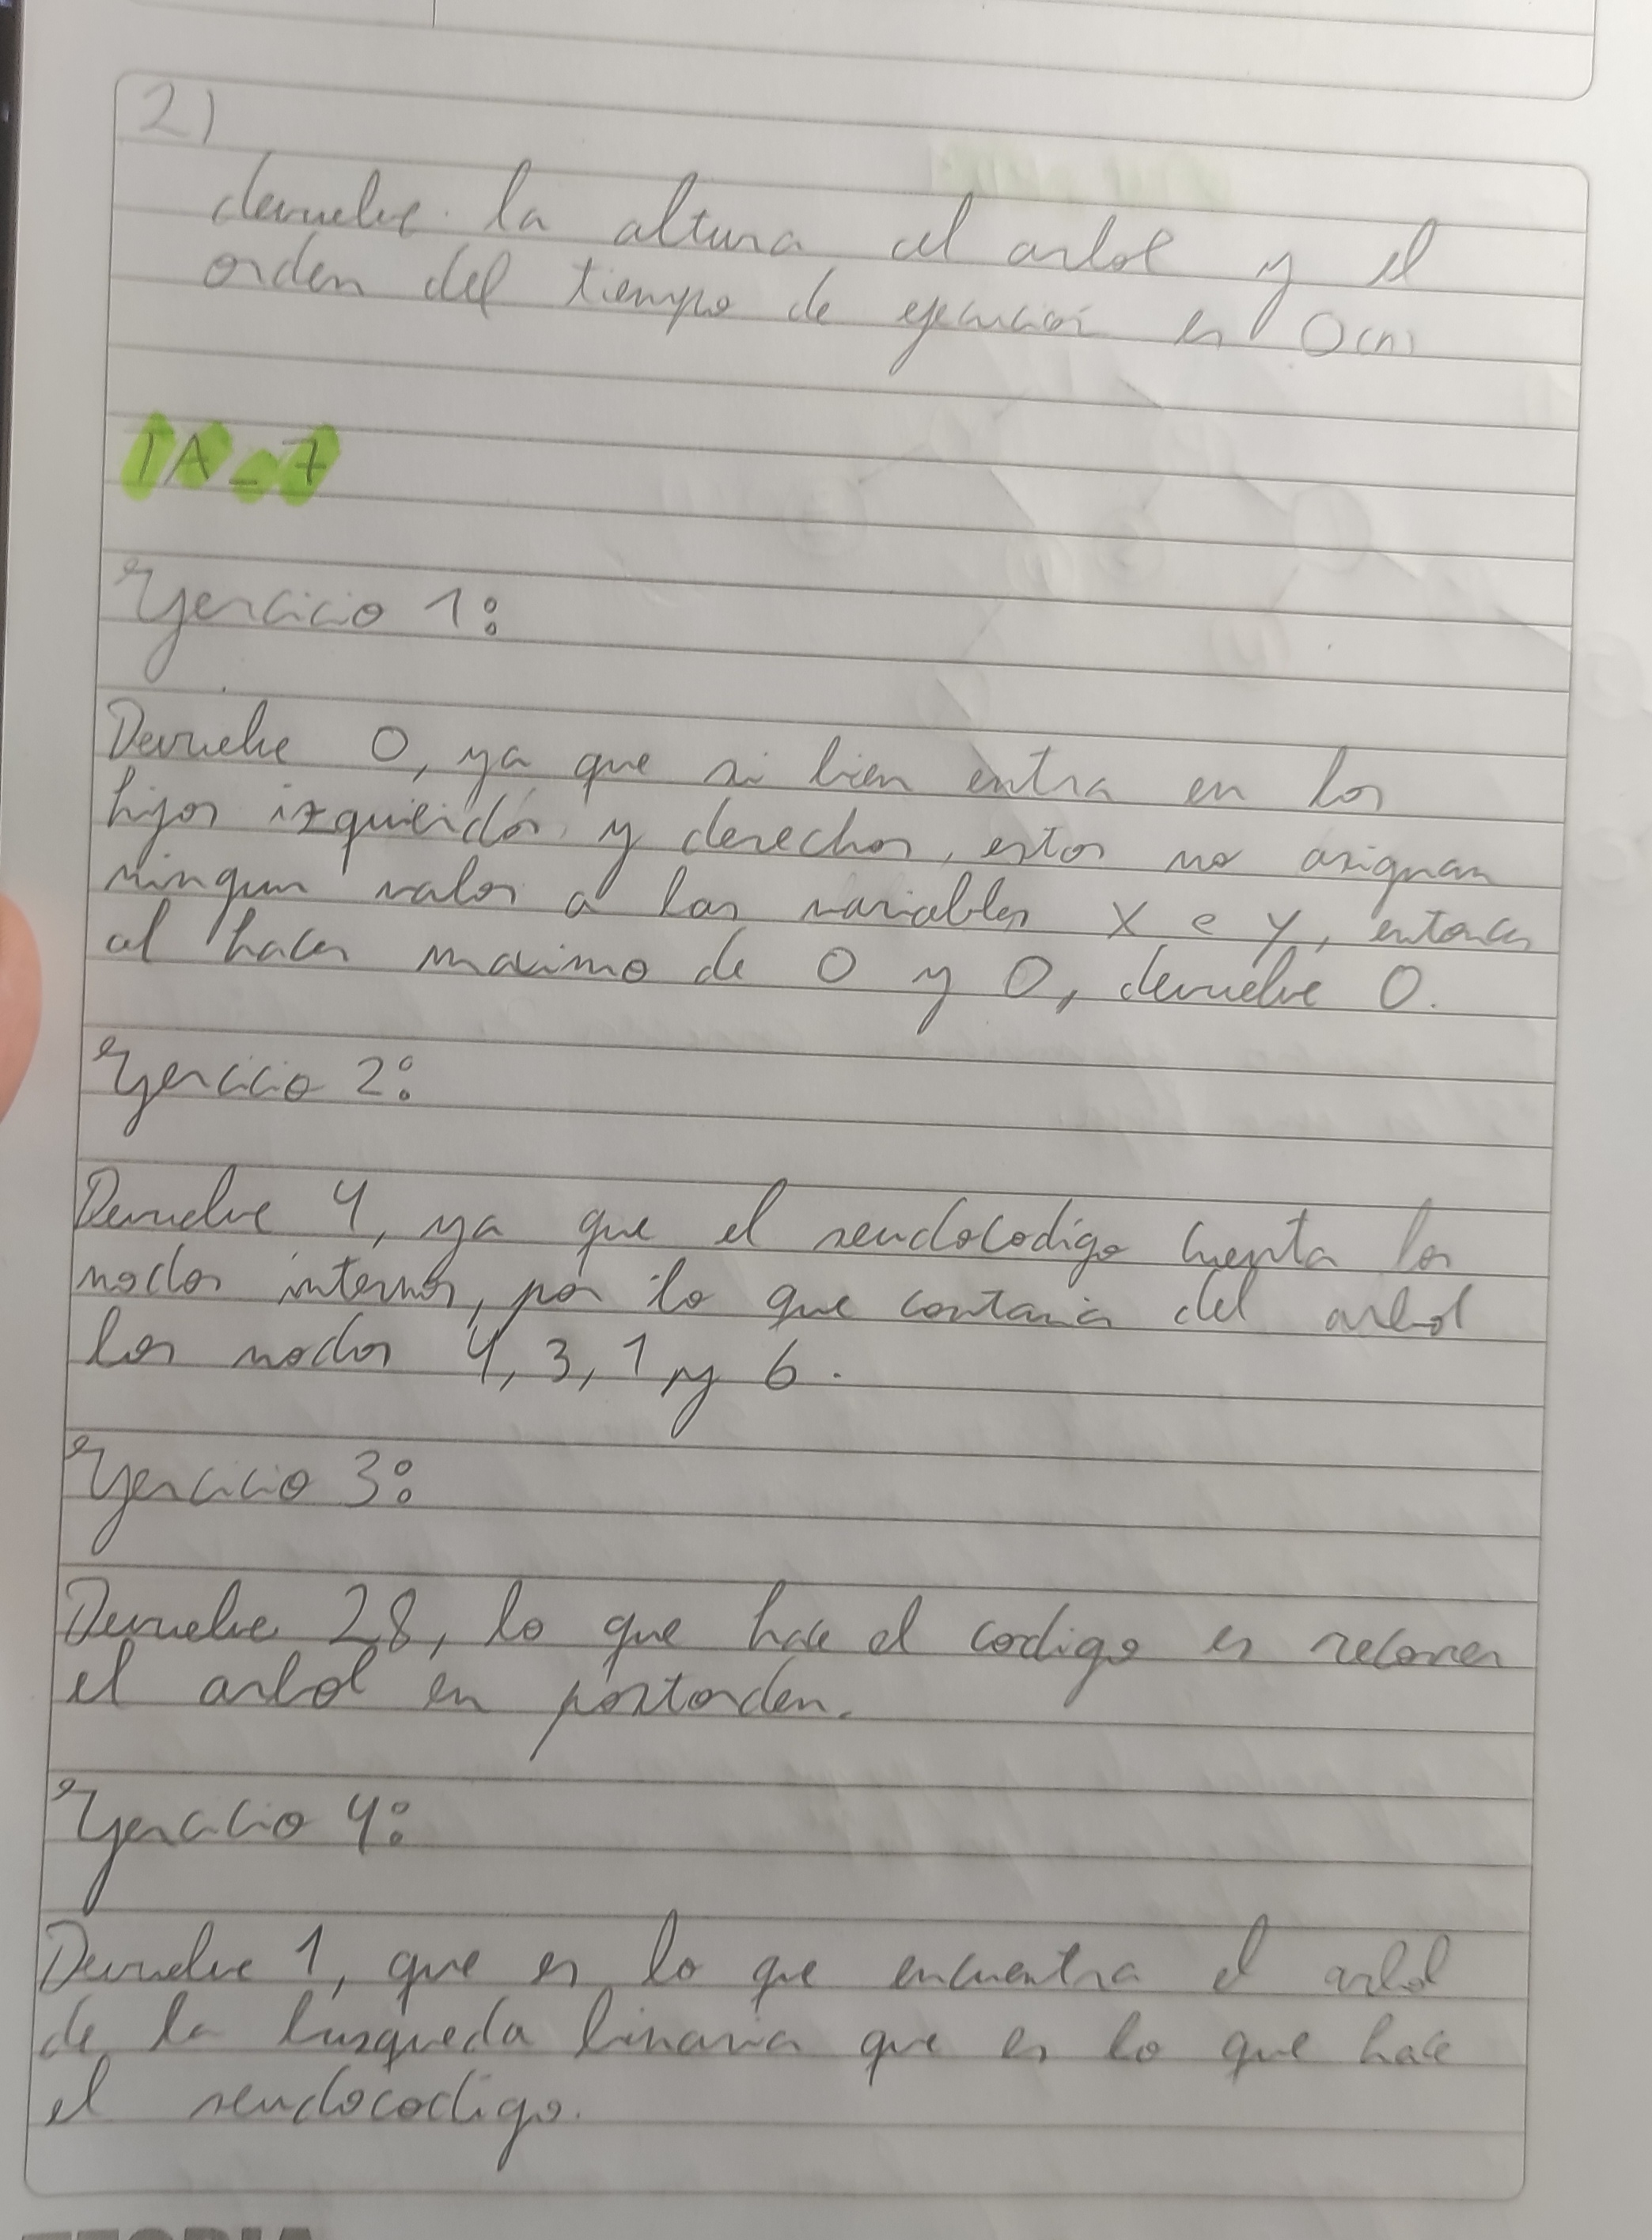 2)
devuelve la altura del arbol y el
orden del tiempo de ejecución es O(n)
TA_7
Ejercicio 1:
Devuelve 0, ya que si bien entra en los
hijos izquierdos y derechos, estos no asignan
ningun valor a las variables X e Y, entonces
al hacer maximo de 0 y 0, devuelve 0.
Ejercicio 2:
Devuelve 4, ya que el seudocodigo cuenta los
nodos internos, por lo que contaria del arbol
los nodos 4, 3, 1 y 6.
Ejercicio 3:
Devuelve 28, lo que hace el codigo es recorrer
el arbol en postorden.
Ejercicio 4:
Devuelve 1, que es lo que encuentra el arbol
de la busqueda binaria que es lo que hace
el seudocodigo.